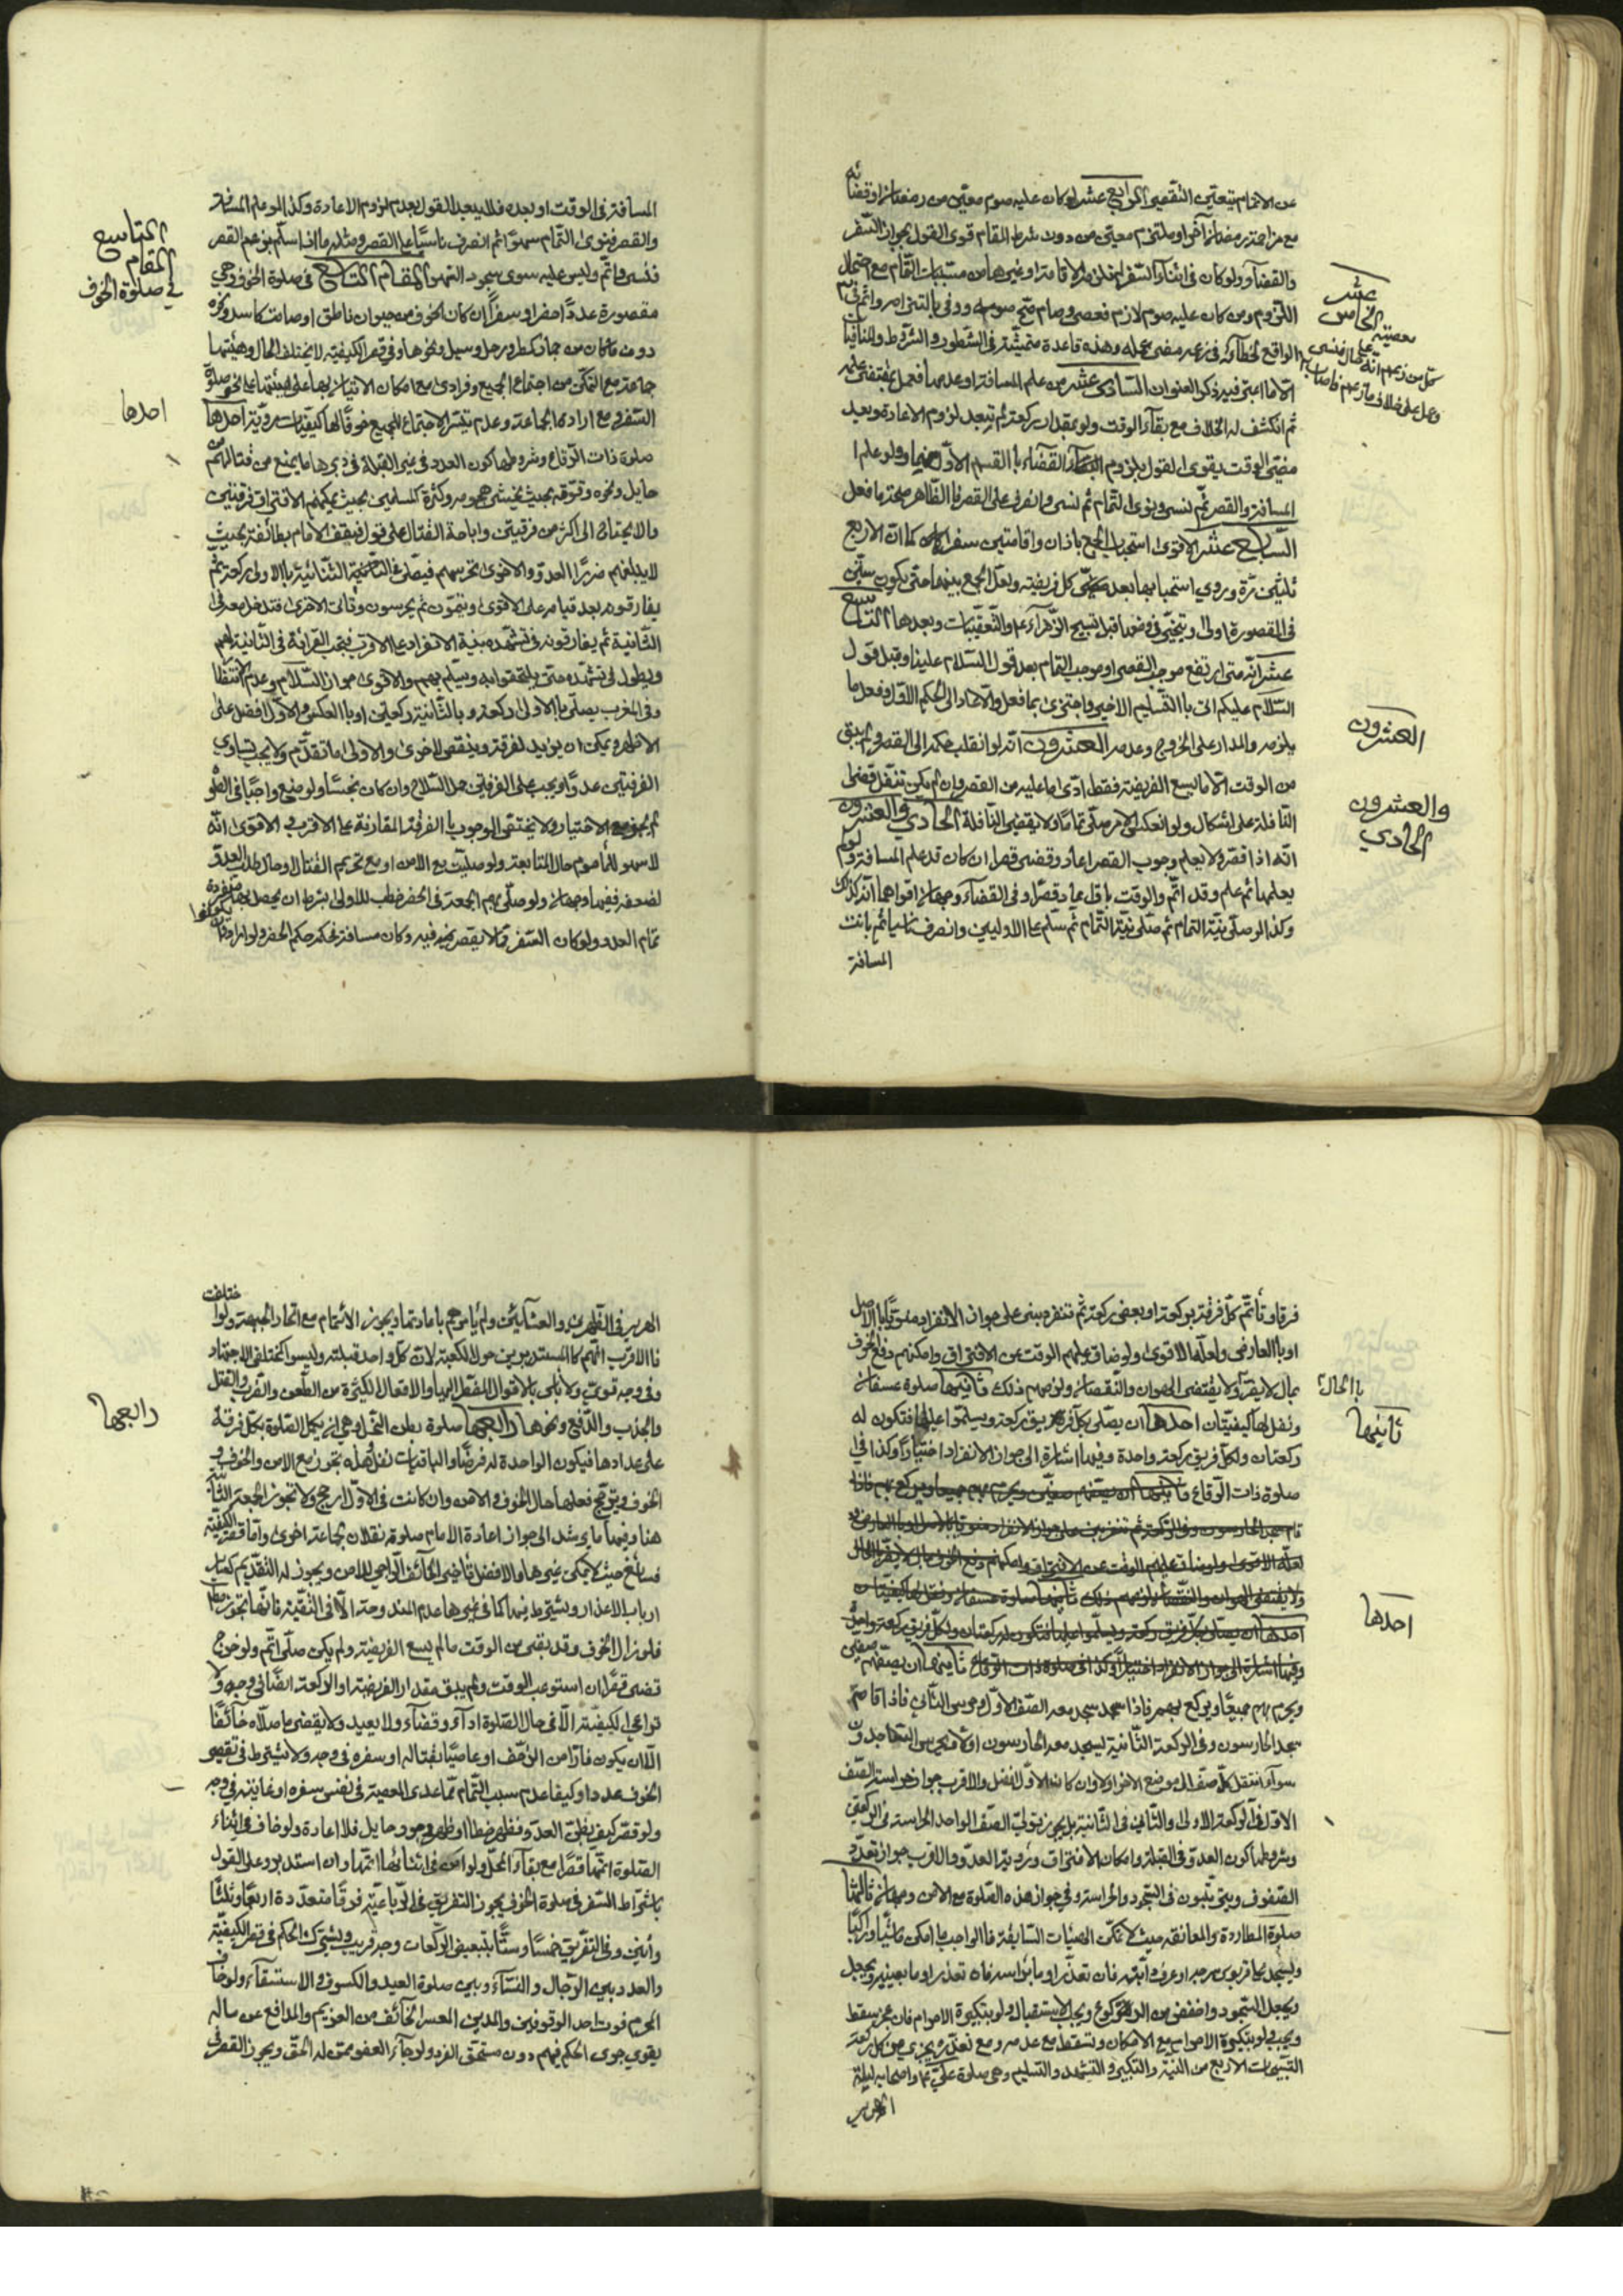 عن الاتمام تيعين التقصير الرابع عشر لو كان عليه صوم معين من رمضان او قضائه
مع مزاحمة رمضان آخر او ملتزم معين من دون شرط المقام قوى القول بجواز السفر
والقضاء ولو كان في اثناء السفر لم يلزمه الاقامة او غيرها من مثبتات التمام مع احتمال
اللزوم ومن كان عليه صوم لازم فعصى وصام صح صومه ووفى بالتزامه واثم في
عشر
الخامس
معصيته
كل من زعم انه على حال فنسى
وعمل على خلاف ما زعم فاصاب
الواقع لخطائه في زعمه مضى عمله وهذه قاعدة متمشية في الشطور والشروط والمنافيات
الا ما اعتبر فيه ذكر العنوان السادس عشر من علم المسافة او عدمها فعمل بمقتضى علمه
ثم انكشف له الخلاف مع بقاء الوقت ولو بمقدار ركعة لم يبعد لزوم الاعادة وبعد
مضي الوقت يقوى القول بلزوم القضاء بالقسم الاول منهما ولو علم
المسافة والقصر ثم نسى ونوى التمام ثم نسى وانصرف على القصر فالظاهر صحة ما فعل
السابع عشر الاقوى استحباب الجمع باذان واقامتين سفرا كما ان الاربع
ثلثين مرة وروي استحبابها بعد كل فريضة ولعل الجمع بينهما حتى يكون ستين
في المقصورة اولى ويتخير في وضعها قبل تسبيح الزهراء ع والتعقيبات وبعدها التاسع
عشر انه متى ارتفع موجب القصر او موجب التمام بعد قول السلام علينا وقبل قول
السلام عليكم اتى بالتسليم الاخير واجتزى بما فعل والا عاد الى الحكم الاول وفعل ما
يلزمه والمدار على الخروج وعدمه العشرون انه لو انقلب حكمه الى القصر ولم يبق
العشرون
من الوقت الا ما يسع الفريضة فقط ادى ما عليه من القصر وان لم يكن تنفل قضى
النافلة على اشكال ولو انعكس الامر صلى تماما ولا يقضي النافلة الحادي والعشرون
والعشرون
الحادي
انه اذا قصر ولا يعلم وجوب القصر اعاد وقضى قصرا ان كان قد علم المسافة ولو لم
يعلمها ثم علم وقد اتم والوقت باق اعاد قصرا وفي القضاء وجهان اقواهما انه كذلك
وكذا لو صلى بنية التمام ثم صلى بنية التمام ثم سلم على الاوليين وانصرف ناسيا ثم بانت
المسافة
المسافة في الوقت او بعده فلا يبعد القول بعدم لزوم الاعادة وكذا لو علم المسافة
والقصر فنوى التمام سهوا ثم انصرف ناسيا على القصر ومثله ما اذا سلم بزعم القصر
فنسى فاتم وليس عليه سوى سجود السهو المقام التاسع في صلوة الخوف وهي
التاسع
المقام
في صلوة الخوف
مقصورة عددا حضرا وسفرا ان كان الخوف من حيوان ناطق او صامت كاسد ونحوه
دون ما كان من جماد كمطر ووحل وسيل ونحوها وفي قصر الكيفية لا يختلف الحال وهيئتها
جماعة مع التمكن من اجتماع الجميع وفرادى مع امكان الاتيان بها على هيئتها على نحو صلوة
السفر مع ارادة الجماعة وعدم تيسر الاجتماع للجميع خوفا لها كيفيات مروية احدها
احدها
صلوة ذات الرقاع وشروطها كون العدو في غير القبلة او في دبرها ما يمنع من قتالهم
حايل ونحوه وقوته بحيث يخشى هجومه وكثرة المسلمين بحيث يمكنهم الافتراق فرقتين
والاحتياج الى اكثر من فرقتين واباحة القتال على قول فيقف الامام بطائفة بحيث
لا يبلغهم ضرر العدو والاخرى تحرسهم فيصلى في الثنائية بالاولى ركعة ثم
يفارقونه بعد قيامه على الاقوى ويتمون ثم يحرسون وتأتي الاخرى فتدخل معه في
الثانية ثم يفارقونه في تشهده بنية الانفراد على الاقرب فتجب القرائة في الثانية لهم
ويطول في تشهده حتى يلتحقوا به ويسلم بهم والاقوى جواز السلام وعدم انتظار
وفي المغرب يصلي بالاولى ركعة وبالثانية ركعتين او بالعكس والاول افضل على
الاظهر ويمكن ان يزيد لفرقة وينقص لاخرى والاولى ما تقدم ولا يجب تساوي
الفرقتين عددا ويجب على الفرقتين حمل السلاح وان كان نجسا ولو منع واجبا في الصلو
لم يجز مع الاختيار ولا يختص الوجوب بالفرقة المقارنة على الاقرب والاقوى انه
لا سهو للمأموم حال المتابعة ولو صليت مع الامن او مع تحريم القتال او حال طلب العدو
لضعفه ففيها وجهان ولو صلى بهم الجمعة في الحضر خطب للاولى بشرط ان يحصل بها منفردة
تمام العدد ولو كان السفر مما لا يقصر فيه وكان مسافة فحكمه حكم الحضر ولو ارادوا ان يكونوا
فرقا وتأتم كل فرقة بركعة او بعض ركعة ثم تنفرد بنى على جواز الانفراد منويا بالاصل
او بالعارض ولعله الاقوى ولو ضاق عليهم الوقت عن الافتراق وامكنهم دفع الخوف
بمال لا يضر ولا يقتضي الهوان والنقصان لزمهم ذلك ثانيها صلوة عسفان
بالحال
ثانيها
ونقل لها كيفيتان احدها ان يصلى بكل فريق ركعة ويسلموا عليها فتكون له
ركعتان ولكل فريق ركعة واحدة وفيها اشارة الى جواز الانفراد اختيارا وكذا في
صلوة ذات الرقاع
احدها
ثانيها ان يصفهم صفين
ويحرم بهم جميعا ويركع بهم فاذا سجد سجد معه الصف الاول وحرس الثاني فاذا قام
سجد الحارسون وفي الركعة الثانية يسجد معه الحارسون اولا ويحرس الساجدون
سواء انتقل كل صف الى موضع الاخر او لا وان كان الاول افضل والاقرب جواز حراسة الصف
الاول في الركعة الاولى والثاني في الثانية بل يجوز تولي الصف الواحد الحراسة في الركعتين
وشروطها كون العدو في القبلة وامكان الافتراق ورؤية العدو والاقرب جواز تعدد
الصفوف ويترتبون في السجود والحراسة وفي جواز هذه الصلوة مع الامن وجهان ثالثها
صلوة المطاردة والمعانقة حيث لا تمكن الهيئات السابقة فالواجب ما امكن ماشيا وراكبا
وليسجد على قربوس سرجه او عرف دابته فان تعذر اومأ برأسه فان تعذر اومأ بعينيه ويجعل
ويجعل السجود اخفض من الركوع ويجب الاستقبال ولو بتكبيرة الاحرام فان عجز سقط
ويجب ولو بتكبيرة الاحرام مع الامكان وتسقط مع عدمه ومع تعذره يجزي عن كل ركعة
التسبيحات الاربع من النية والتكبير والتشهد والتسليم وهي صلوة علي ع واصحابه ليلة
الهرير
الهرير في الظهرين والعشائين ولم يأمرهم باعادتها ويجوز الائتمام مع اتحاد الجهة ولو اختلفت
فالاقرب انهم كالمستديرين حول الكعبة لان كل واحد قبلته وليسوا كمختلفي الاجتهاد
وفي وجه قوي ولا بأس بالاقوال المضطر اليها والافعال الكثيرة من الطعن والضرب والقتل
والجذب والدفع ونحوها رابعها صلوة بطن النخل وهي ان يكمل الصلوة بكل فرقة
رابعها
على عدادها فيكون الواحدة له فرضا والباقيات نفلا وهذه تجوز مع الامن والخوف
الخوف ويترجح فعلها حال الخوف والامن وان كانت في الاول ارجح ولا تجوز الجمعة الثانية
هنا وفيها ما يرشد الى جواز اعادة الامام صلوة نفلا بجماعة اخرى واما قصر الكيفية
فسائغ حيث لا يمكن غيرها والافضل تأخير الخائف الراجي للامن ويجوز له التقديم كسائر
ارباب الاعذار ويشترط فيها كما في غيرها عدم المندوحة الا في التقية فانها تجوز مطلقا
فلو زال الخوف وقد بقي من الوقت ما لم يسع الفريضة ولم يكن صلى اتم ولو خرج
قضى قصرا ان استوعب الوقت ولم يبق مقدار الفريضة او الركعة ايضا في وجه ولا
تراعى الكيفية الا في حال الصلوة اداء وقضاء ولا يعيد ولا يقضي ما صلاه خائفا
الا ان يكون فارا من الزحف او عاصيا بقتاله او سفره في وجه ولا يشترط في تقصير
الخوف عددا وكيفا عدم سبب التمام مما عدى المعصية في نفس سفره او غايته في وجه
ولو قصر كيفية بظن العدو فظهر خطأه او ظهر وجود حايل فلا اعادة ولو خاف في اثناء
الصلوة اتمها قصرا مع بقاء المحل ولو امن في اثنائها اتمها وان استدبر وعلى القول
باشتراط السفر في صلوة الخوف يجوز التفريق في الرباعية فرقا متعددة اربعا وثلثا
واثنين وفي التفريق خمسا وستا بتبعيض الركعات وجه قريب ويشترك الحكم في قصر الكيفية
والعدد بين الرجال والنساء وبين صلوة العيد والكسوف والاستسقاء ولو خاف
المحرم فوت احد الوقوفين والمدين المعسر الخائف من الغريم والمدافع عن ماله
يقوي جرى الحكم فيهم دون مستحق القود ولو جاء العفو ممن له الحق ويجوز القصر في